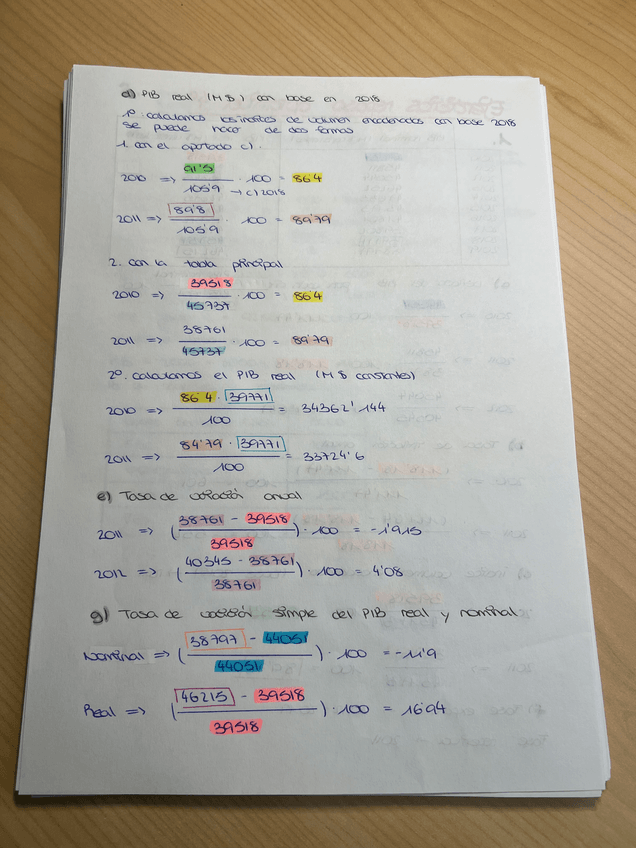 d) PIB real (M $) con base en 2018
1º calculamos los índices de volumen encadenados con base 2018
se puede hacer de dos formas
1. con el apartado c).
2010 => 91'5 / 105'9 · 100 = 86'4
→ c) 2018
2011 => 89'8 / 105'9 · 100 = 89'79
2. con la tabla principal
2010 => 39518 / 45737 · 100 = 86'4
2011 => 38761 / 45737 · 100 = 89'79
2º. calculamos el PIB real (M $ constantes)
2010 => 86'4 · 39771 / 100 = 34362'144
2011 => 84'79 · 39771 / 100 = 33724'6
e) Tasa de variación anual
2011 => (38761 - 39518 / 39518) · 100 = -1'915
2012 => (40345 - 38761 / 38761) · 100 = 4'08
g) Tasa de variación simple del PIB real y nominal
Nominal => (38797 - 44051 / 44051) · 100 = -11'9
Real => (46215 - 39518 / 39518) · 100 = 16'94